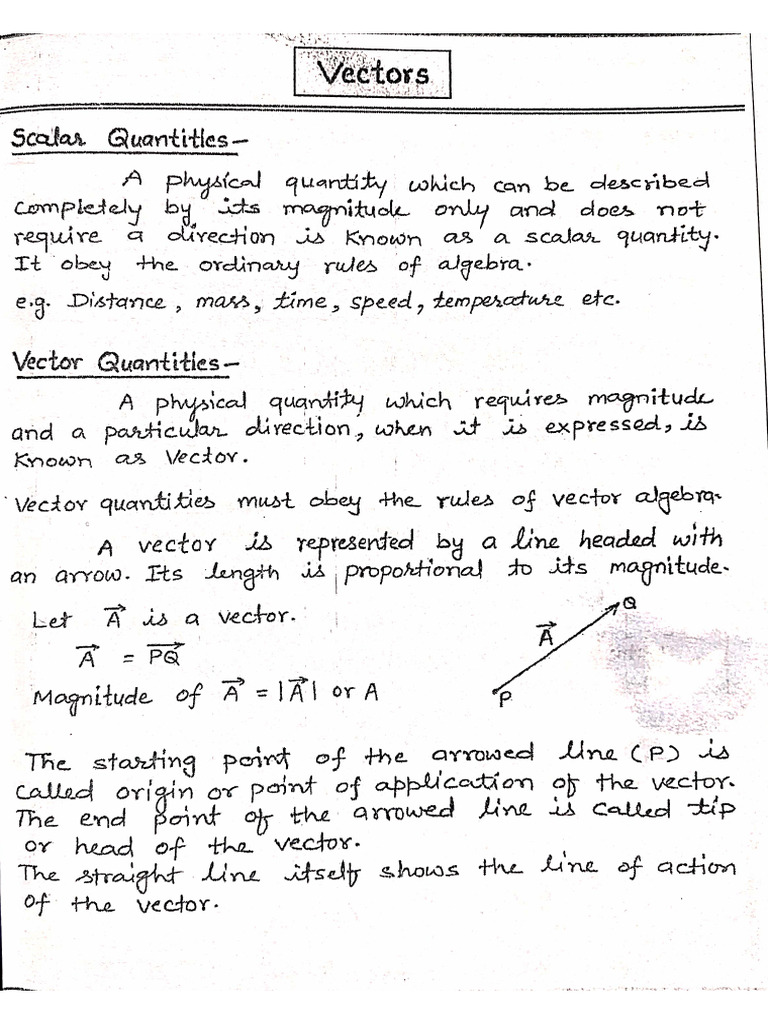 Vectors
Scalar Quantities–
A physical quantity which can be described
completely by its magnitude only and does not
require a direction is known as a scalar quantity.
It obey the ordinary rules of algebra.
e.g. Distance, mass, time, speed, temperature etc.
Vector Quantities–
A physical quantity which requires magnitude
and a particular direction, when it is expressed, is
known as Vector.
Vector quantities must obey the rules of vector algebra.
A vector is represented by a line headed with
an arrow. Its length is proportional to its magnitude.
Let A⃗ is a vector.
A⃗ = PQ⃗
Magnitude of A⃗ = |A⃗| or A
Q
A⃗
P
The starting point of the arrowed line (P) is
called origin or point of application of the vector.
The end point of the arrowed line is called tip
or head of the vector.
The straight line itself shows the line of action
of the vector.